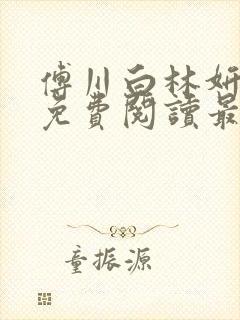 傅川白林妍
免費閱讀最
童振源